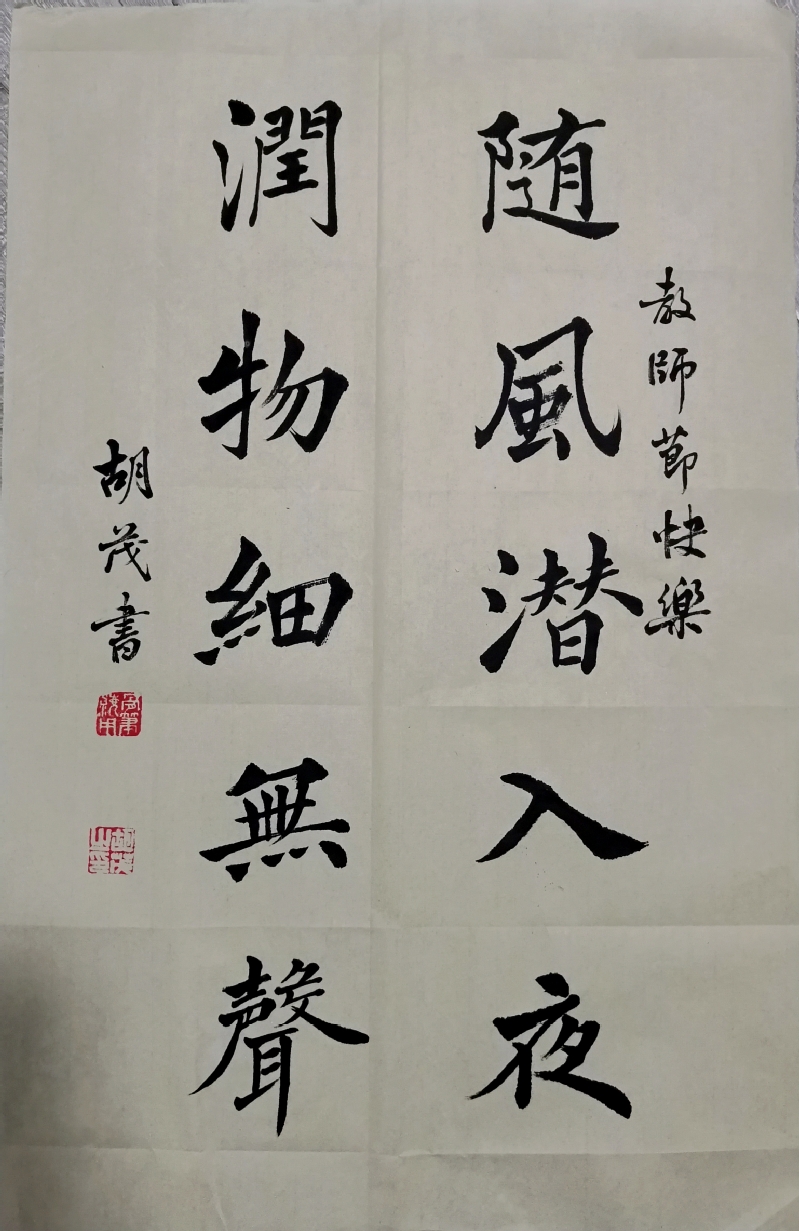 教師節快樂
随風潜入夜
潤物細無聲
胡茂書